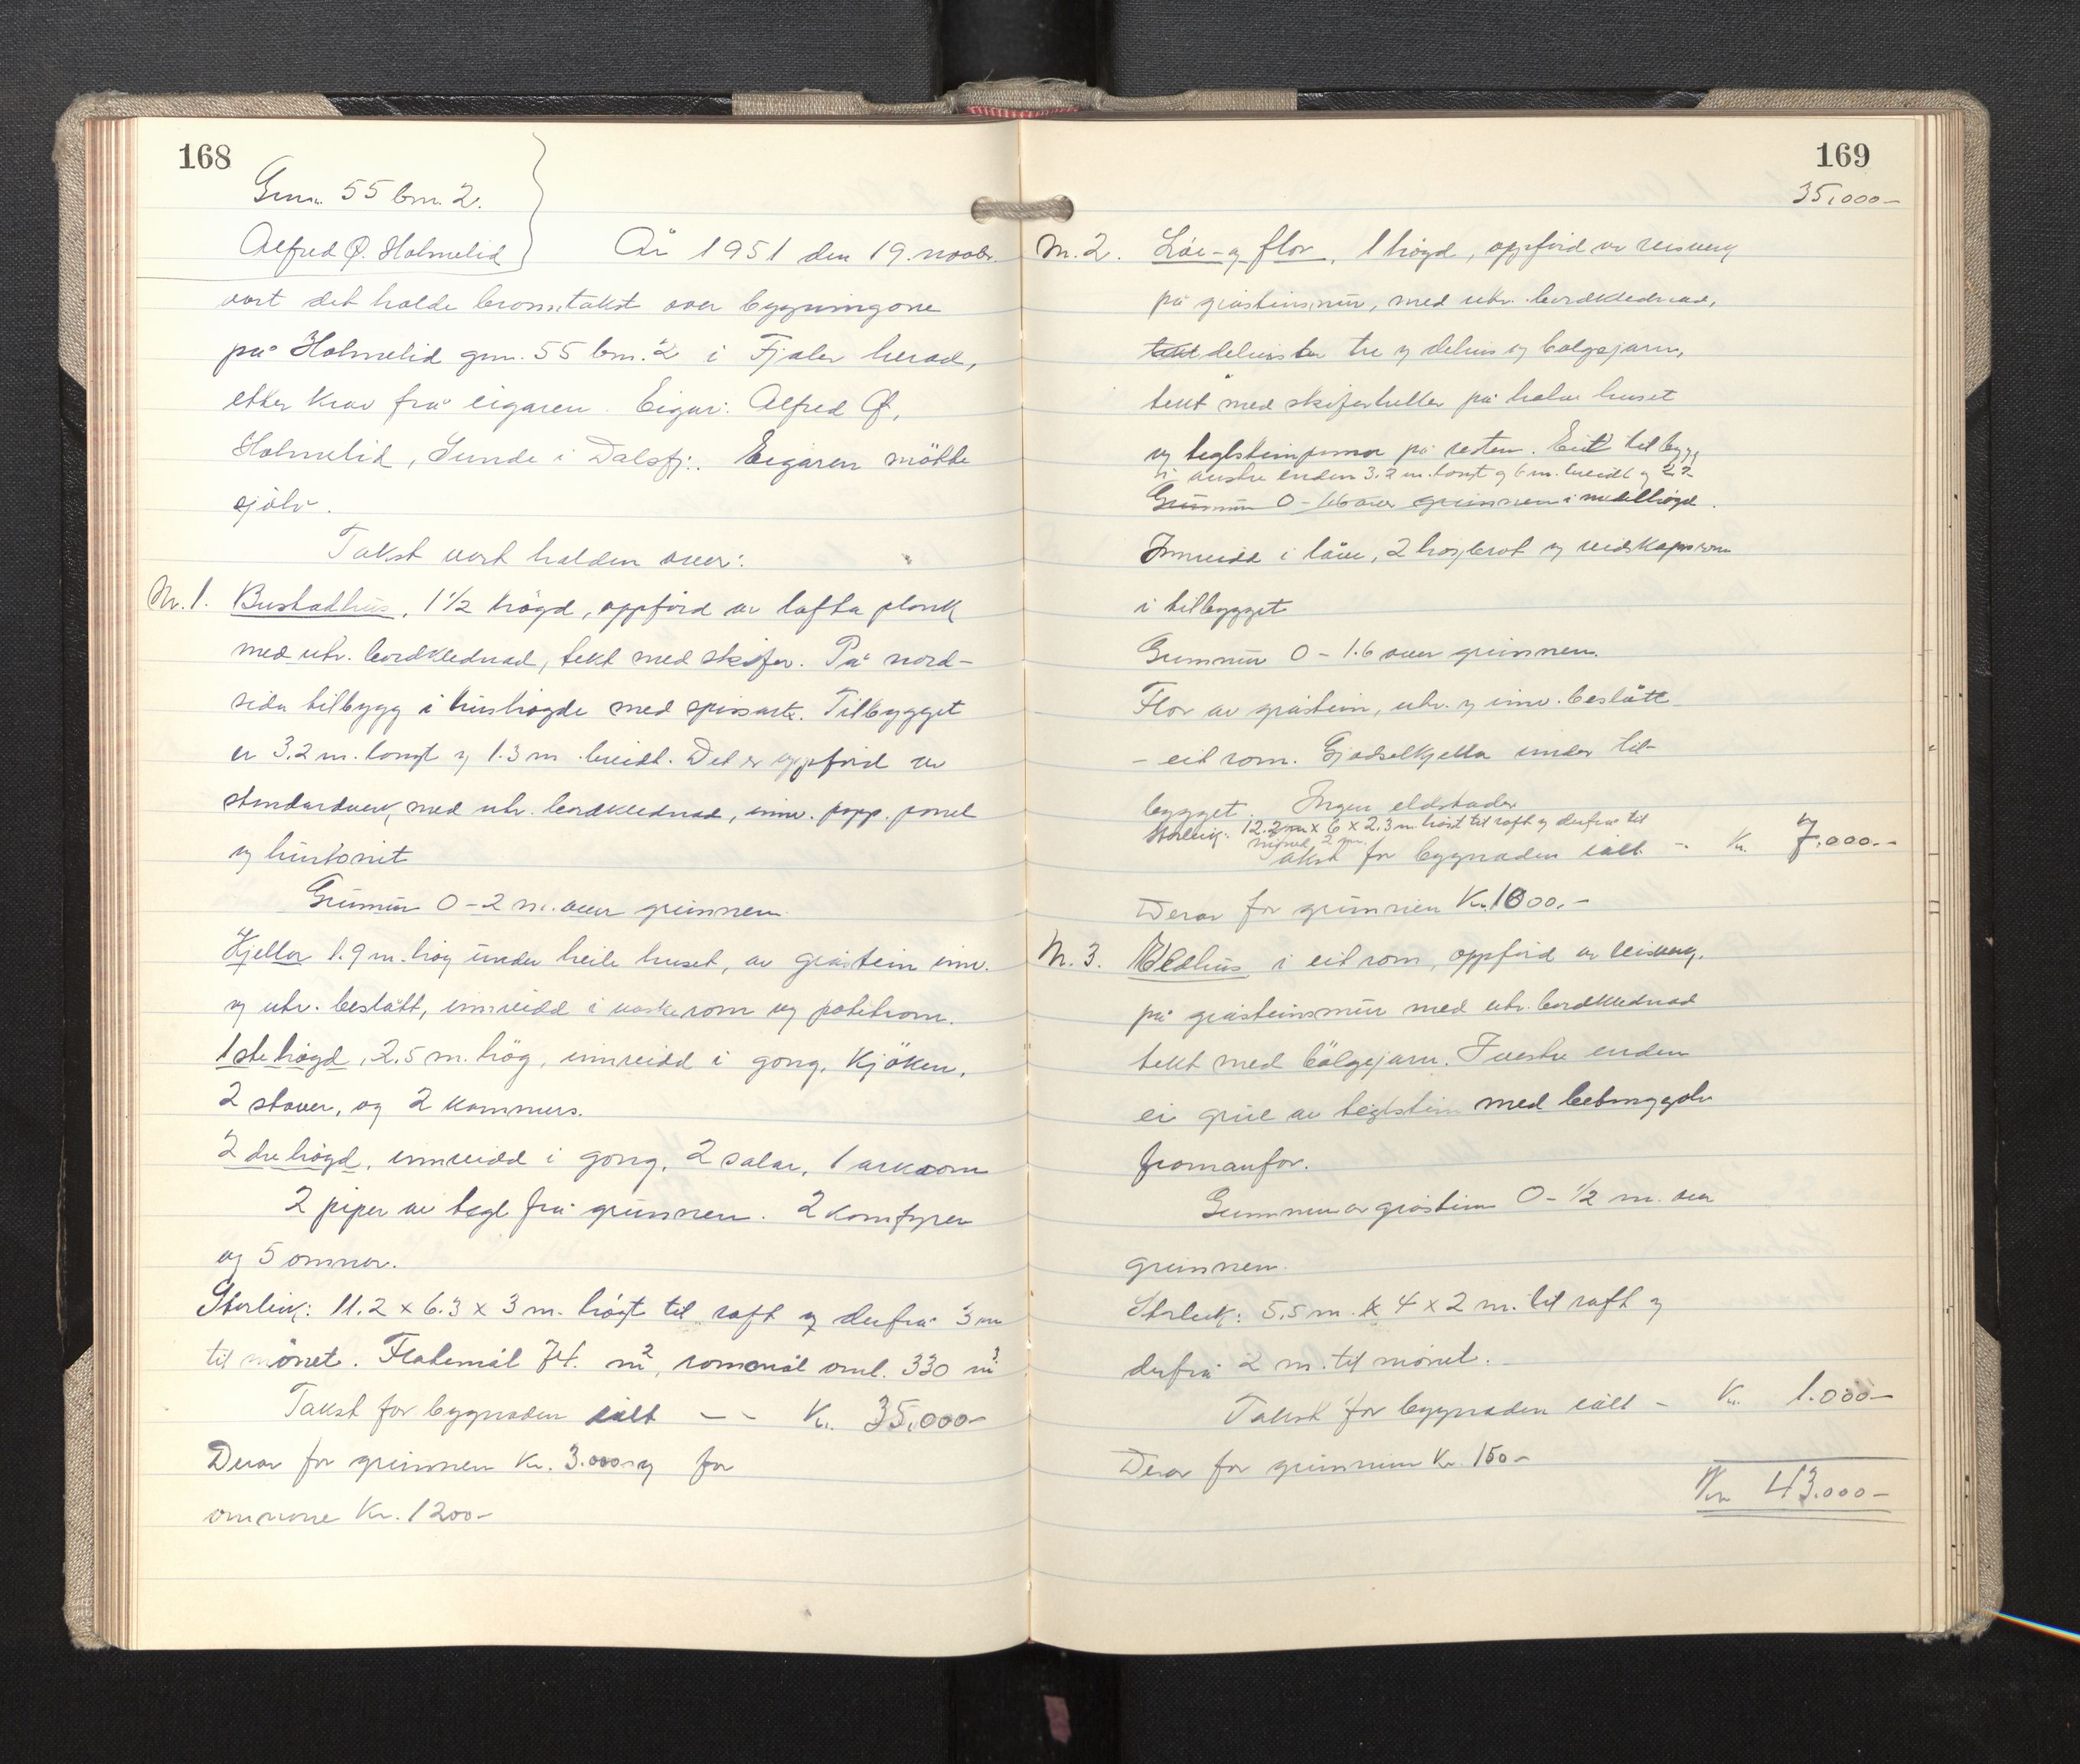 168
Gnr. 55 bnr. 2.
Alfred Q. Holmelid
År 1951 den 19. novbr.
vart det halde branntakst over bygningane
på Holmelid gnr. 55 bnr. 2 i Fjaler herad,
etter krav frå eigaren. Eigar: Alfred Q.
Holmelid, Sunde i Dalsfj.. Eigaren møtte
sjølv.
Takst vart halden over:
Nr. 1. Bustadhus, 1 1/2 høgd, oppførd av lafta plank
med utv. bordklednad, tekt med skifer. På nord-
sida tilbygg i hushøgde med spissark. Tilbygget
er 3.2 m. langt og 1.3 m. breidt. Det er oppførd av
standardverk, med utv. bordklednad, innv. papp. panel
og huntonit
Grunmur 0-2 m. over grunnen.
Kjellar 1.9 m. høg under heile huset, av gråstein innv.
og utv. beslått, innreidd i vaskerom og potetrom.
1ste høgd, 2.5 m. høg, innreidd i gong, kjøken,
2 stover, og 2 kammers.
2dre høgd, innreidd i gong, 2 salar, 1 arkrom
2 piper av tegl frå grunnen. 2 komfyrer
og 5 omnar.
Storleik: 11.2 x 6.3 x 3 m. høgt til raft og derfrå 3 m
til mønet. Flatemål 74. m2, rommål oml. 330 m3
Takst for bygnaden ialt - - Kr. 35.000-
Derav for grunnen Kr. 3.000 og for
omnane Kr. 1200-
169
35.000-
Nr. 2. Löe- og flor, 1 høgd, oppførd av reisverk
på gråsteinsmur, med utv. bordklednad,
delvis tre og delvis og bølgejarn,
tekt med skiferheller på halve huset
og teglsteinpanner på resten. Eit tilbygg
i austre enden 3.2 m. langt og 6 m. breidt og 2.2
Grunmur 0-1.6 over grunnen i medelhøgd.
Innreidd i låve, 2 høybrot og reidskapsrom
i tilbygget
Grunmur 0-1.6 over grunnen.
Flor av gråstein, utv. og innv. beslått
- eit rom. Gjødselkjellar under til-
bygget. Ingen eldstader
Storleik: 12.2 m x 6 x 2.3 m. høgt til raft og derfrå til
mønet 2 m.
Takst for bygnaden ialt - Kr. 7.000.-
Derav for grunnen Kr. 1000.-
Nr. 3. Eldhus i eit rom, oppførd av reisverk.
på gråsteinsmur med utv. bordklednad
tekt med bølgejarn. I vestre enden
ei grue av teglstein med betonggolv
framanfor.
Grunmur av gråstein 0-1/2 m. over
grunnen.
Storleik: 5.5 m. x 4 x 2 m. til raft og
derfrå 2 m. til mønet.
Takst for bygnaden ialt - Kr. 1.000-
Derav for grunnen Kr. 150-
Kr. 43.000-